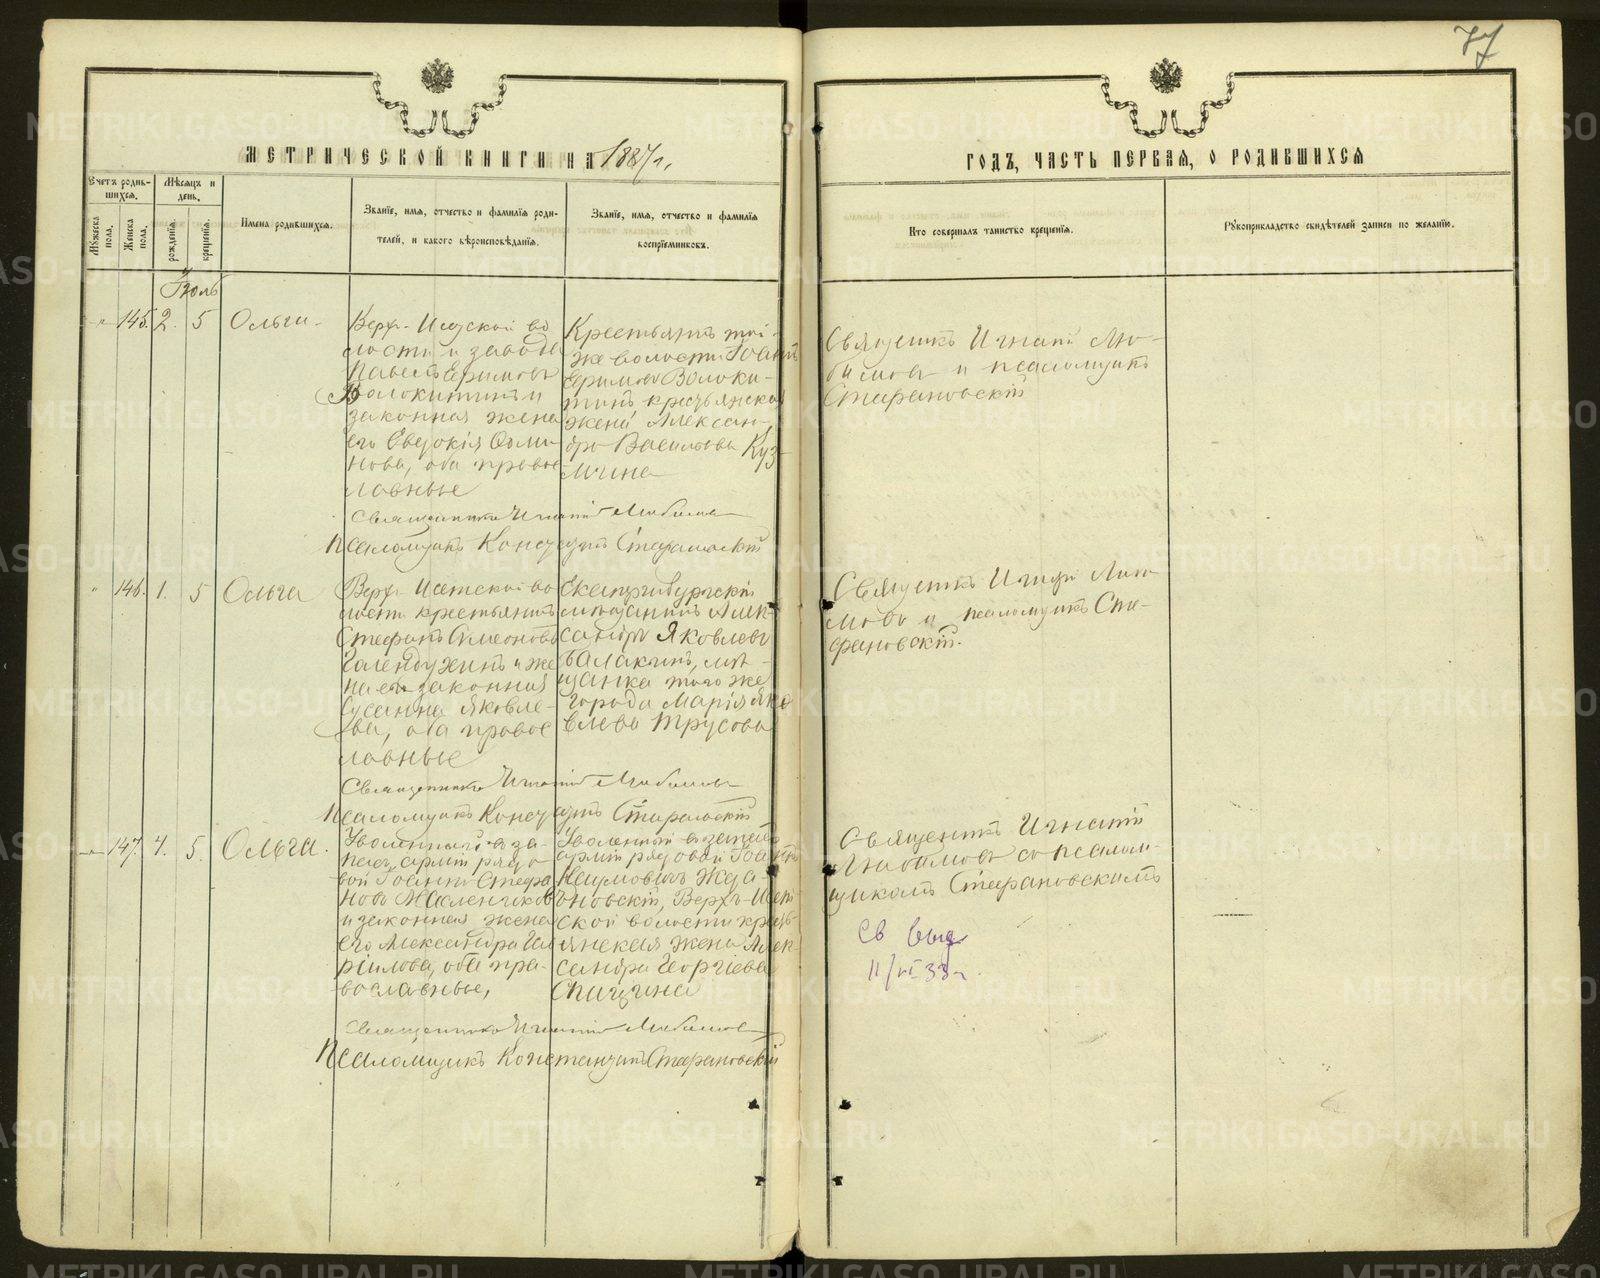 77
МЕТРИЧЕСКОЙ КНИГИ НА 1887 г.
ГОДЪ, ЧАСТЬ ПЕРВАЯ, О РОДИВШИХСЯ
Счетъ родив-
шихся.
Мѣсяцъ и
день.
Мужеска пола.
Женска пола.
рожденія.
крещенія.
Имена родившихся.
Званіе, имя, отчество и фамилія роди-
телей, и какого вѣроисповѣданія.
Званіе, имя, отчество и фамилія
воспріемниковъ.
Кто совершалъ таинство крещенія.
Рукоприкладство свидѣтелей записи по желанію.
Іюль
145. 2. 5 Ольга.
Верх-Исетской во
лости и завода
Павелъ Ефимовъ
Волокитинъ и
законная жена
его Евдокія
нова, оба право
славные
Крестьянинъ той-
же волости Іоаннъ
Ефимовъ Волоки-
тинъ крестьянская
жена Алексан-
дра Васильева Куз-
мина
Священникъ Игнатій Лю-
бимовъ и псаломщикъ
Стефановскій
Священникъ Игнатій Любимовъ
Псаломщикъ Константинъ Стефановскій
146. 1. 5 Ольга
Верх-Исетской во
лости крестьянинъ
Стефанъ Симеоновъ
и же
на его законная
Сусанна Яковле-
ва, оба право
славные
Екатеринбургскій
мѣщанинъ Алек-
сандръ Яковлевъ
Балакинъ, мѣ-
щанка того же
города Марія Яко
влева Трусова
Священникъ Игнатій Люби-
мовъ и псаломщикъ Сте-
фановскій.
Священникъ Игнатій Любимовъ
Псаломщикъ Констант Стефановскій
147. 4. 5. Ольга.
Уволенный въ за-
пасъ арміи рядо
вой Іоаннъ Стефа
новъ Масленников
и законная жена
его Александра Гав
рiилова, оба пра-
вославные,
Уволенный въ запасъ
арміи рядовой Іоаннъ
Наумовичъ Жда-
новскій, Верхъ-Исет
ской волости кресть-
янская жена Алек-
сандра Георгіева
Спицина
Священникъ Игнатій
Любимовъ со псалом-
щикомъ Стефановскимъ
Св выд.
11/VI 33 г.
Священникъ Игнатій Любимовъ
Псаломщикъ Константинъ Стефановскій
METRIKI.GASO-URAL.RU